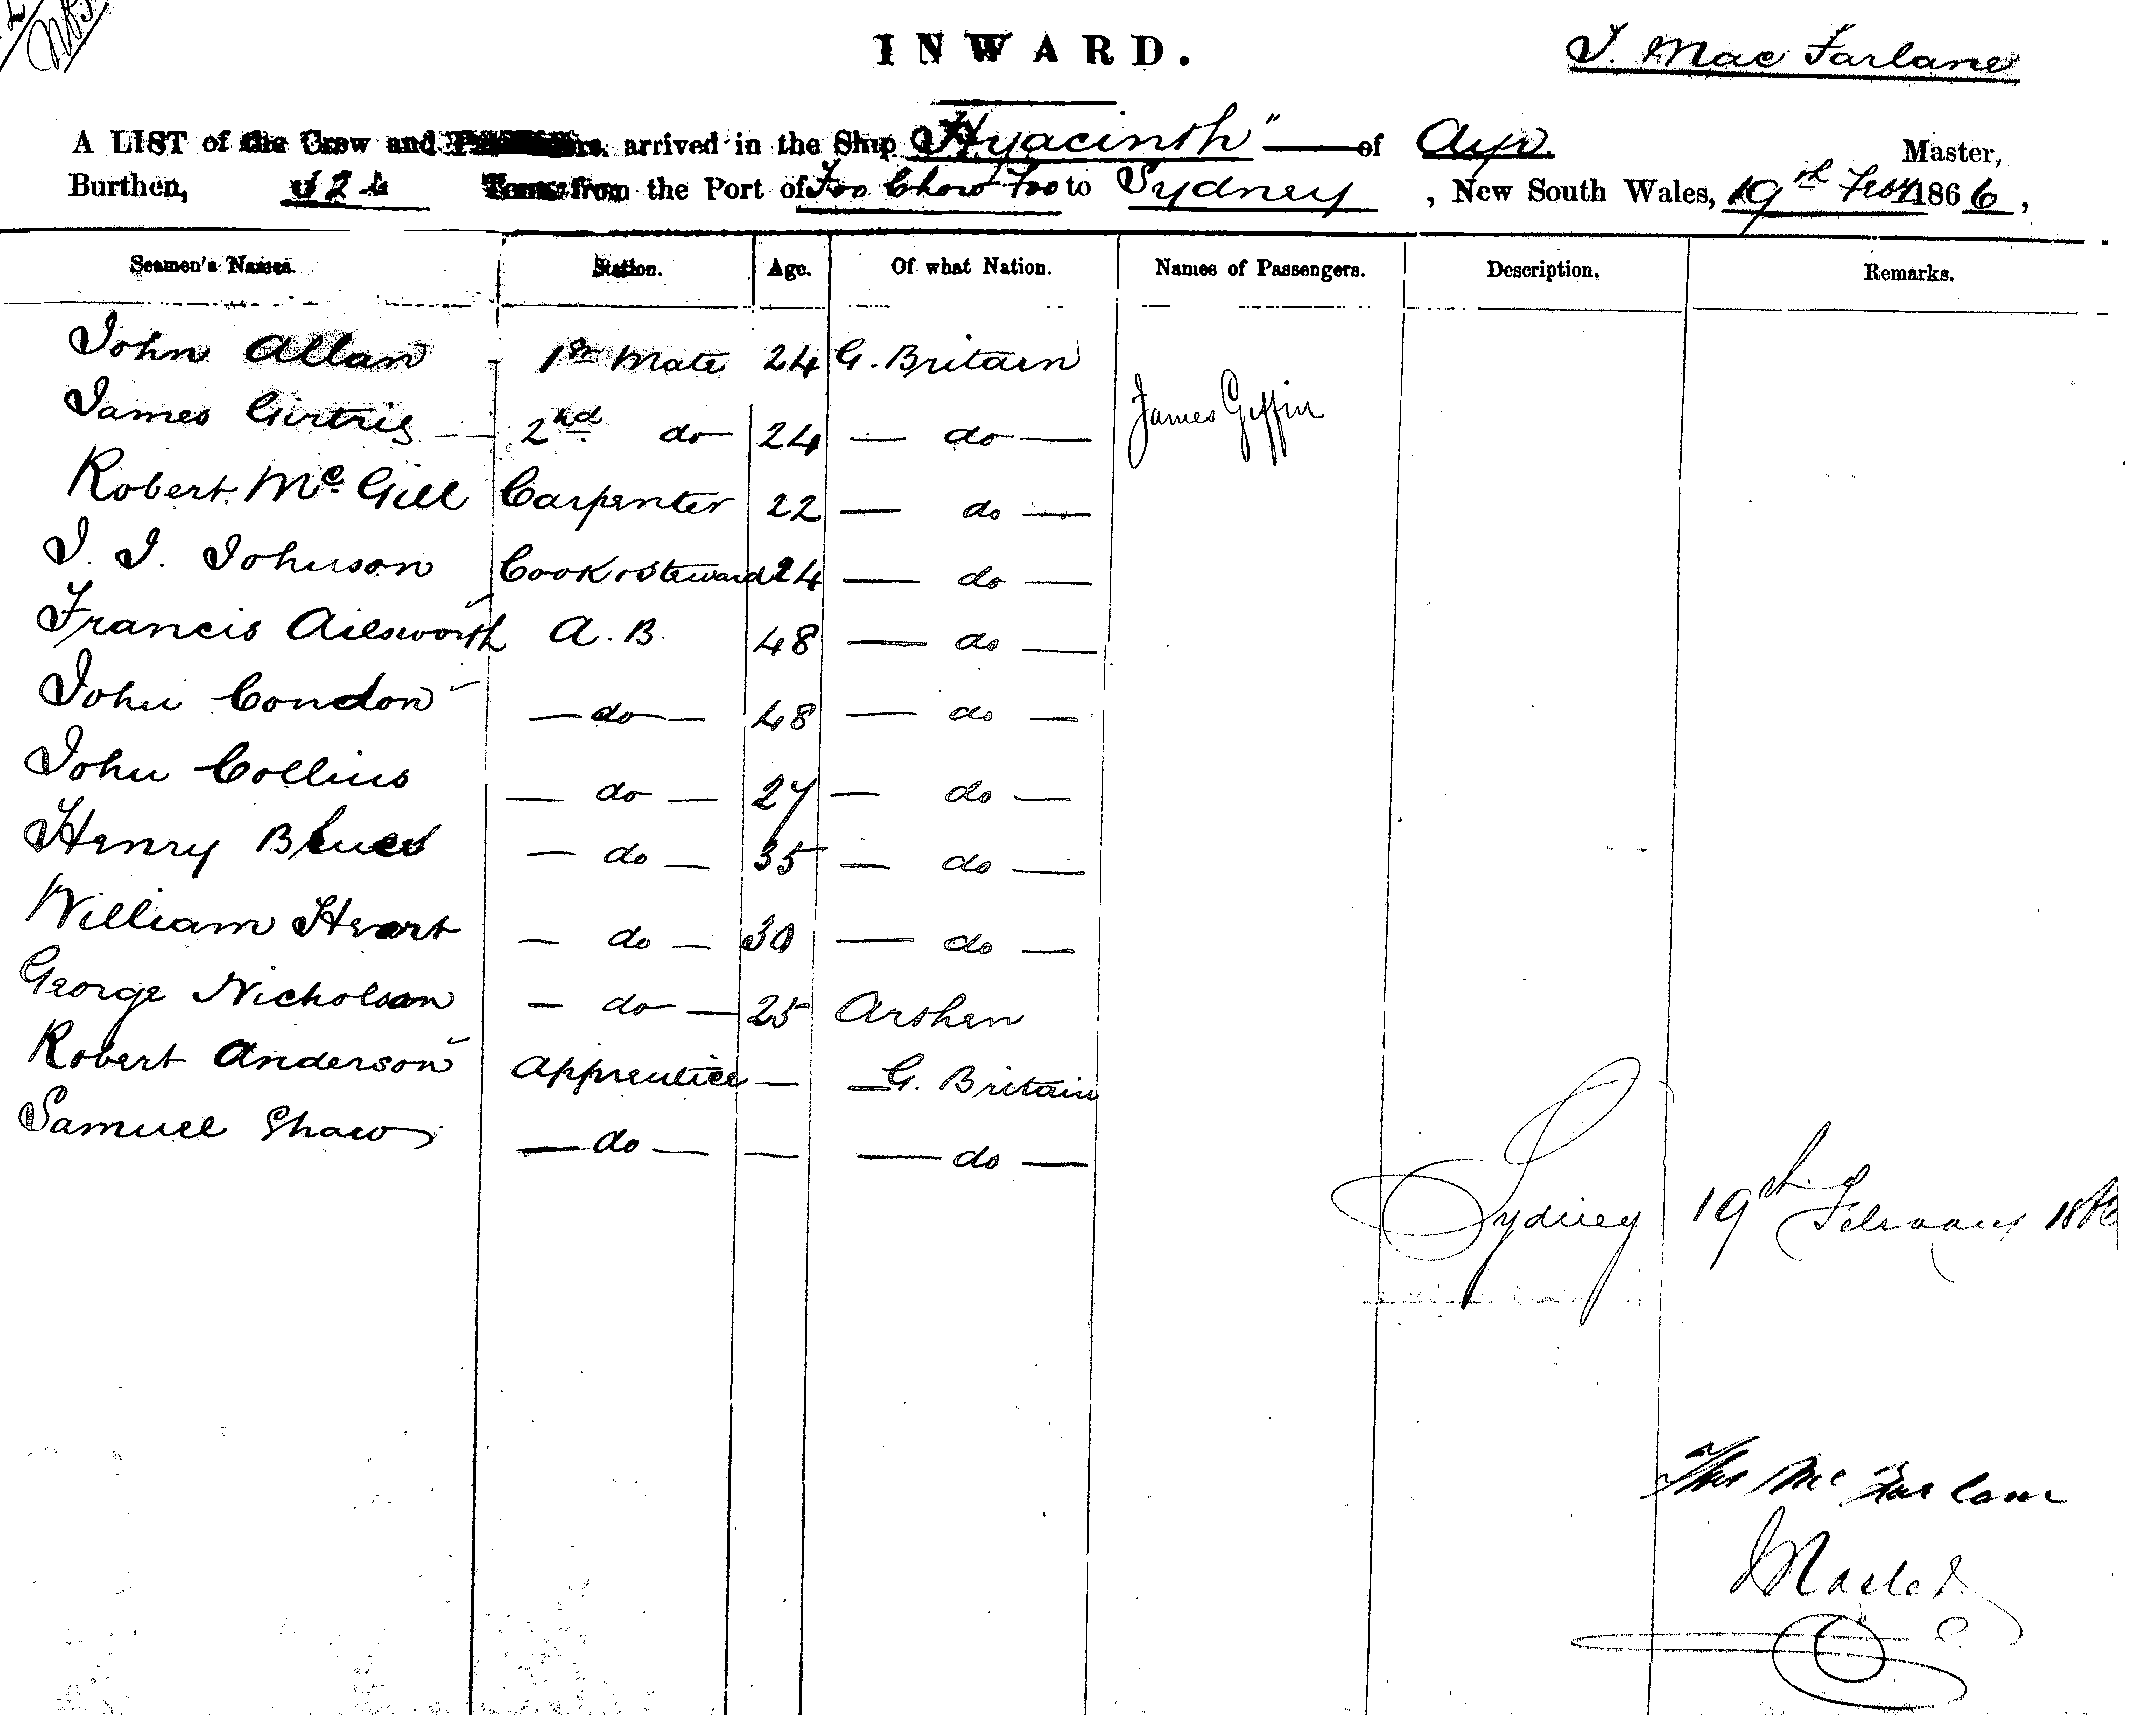 INWARD.
J. Mac Farlane
A LIST of the Crew and Passengers, arrived in the Ship "Hyacinth" of Ayr Master,
Burthen, Tons, from the Port of Foo Chow Foo to Sydney, New South Wales, 19th Feby 1866,
Seamen's Names. Station. Age. Of what Nation. Names of Passengers. Description. Remarks.
John Allan 1st Mate 24 G. Britain
James 2nd do 24 — do — James Giffin
Robert McGill Carpenter 22 — do —
J. J. Johnson Cook & Steward 24 — do —
Francis Ailsworth A.B. 48 — do —
John Condon — do — 48 — do —
John Collins — do — 27 — do —
Henry — do — 35 — do —
William — do — 30 — do —
George Nicholson — do — 25
Robert Anderson Apprentice — G. Britain
Samuel Shaw — do — — — do —
Sydney 19th February
Thos McFarlane
Master